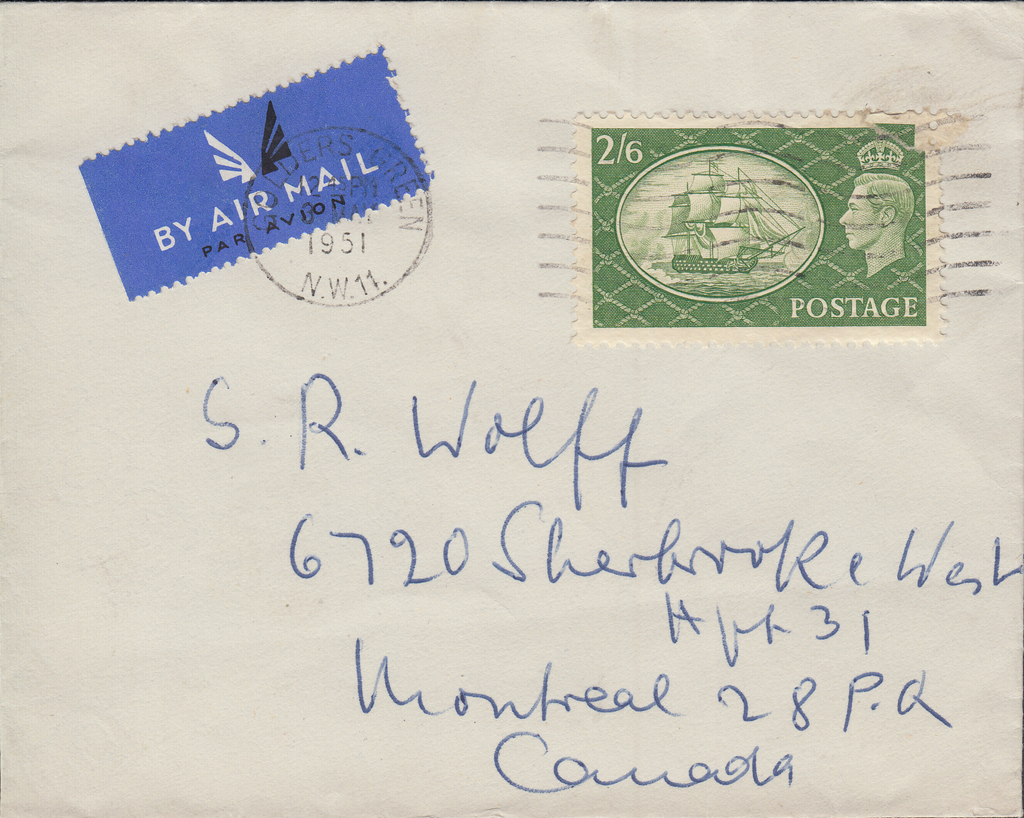 BY AIR MAIL
PAR AVION
GOLDERS GREEN
1951
N.W.11.
2/6
POSTAGE
S. R. Wolff
6720 Sherbrooke West
Apt 31
Montreal 28 P.Q
Canada